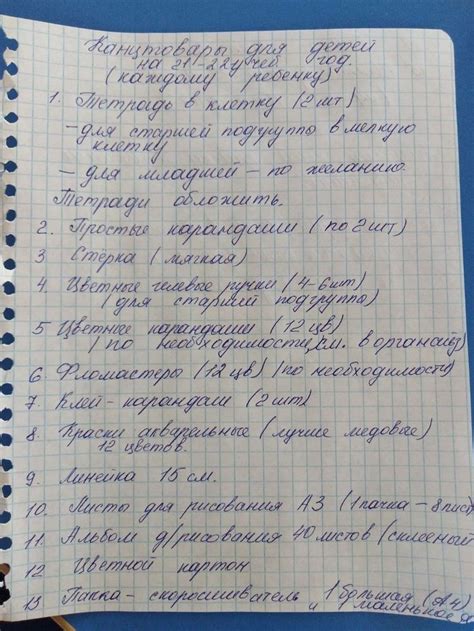 Канцтовары для детей
на 21-22 учеб. год.
(каждому ребенку)
1. Тетрадь в клетку (2 шт)
- для старшей подгруппы в мелкую
клетку
- для младшей - по желанию.
Тетради обложить.
2. Простые карандаши (по 2 шт)
3 Стёрка (мягкая)
4. Цветные гелевые ручки (4-6 шт)
(для старшей подгруппы)
5 Цветные карандаши (12 цв)
(по необходимости, см. в органайз)
6. Фломастеры (12 цв) (по необходимости)
7 Клей - карандаш (2 шт)
8. Краски акварельные (лучше медовые)
12 цветов.
9. Линейка 15 см.
10. Листы для рисования А3 (1 пачка - 8 лист
11 Альбом д/рисования 40 листов (склееный
12 Цветной картон
13 Папка - скоросшиватель 1 большая (А4)
и маленькое